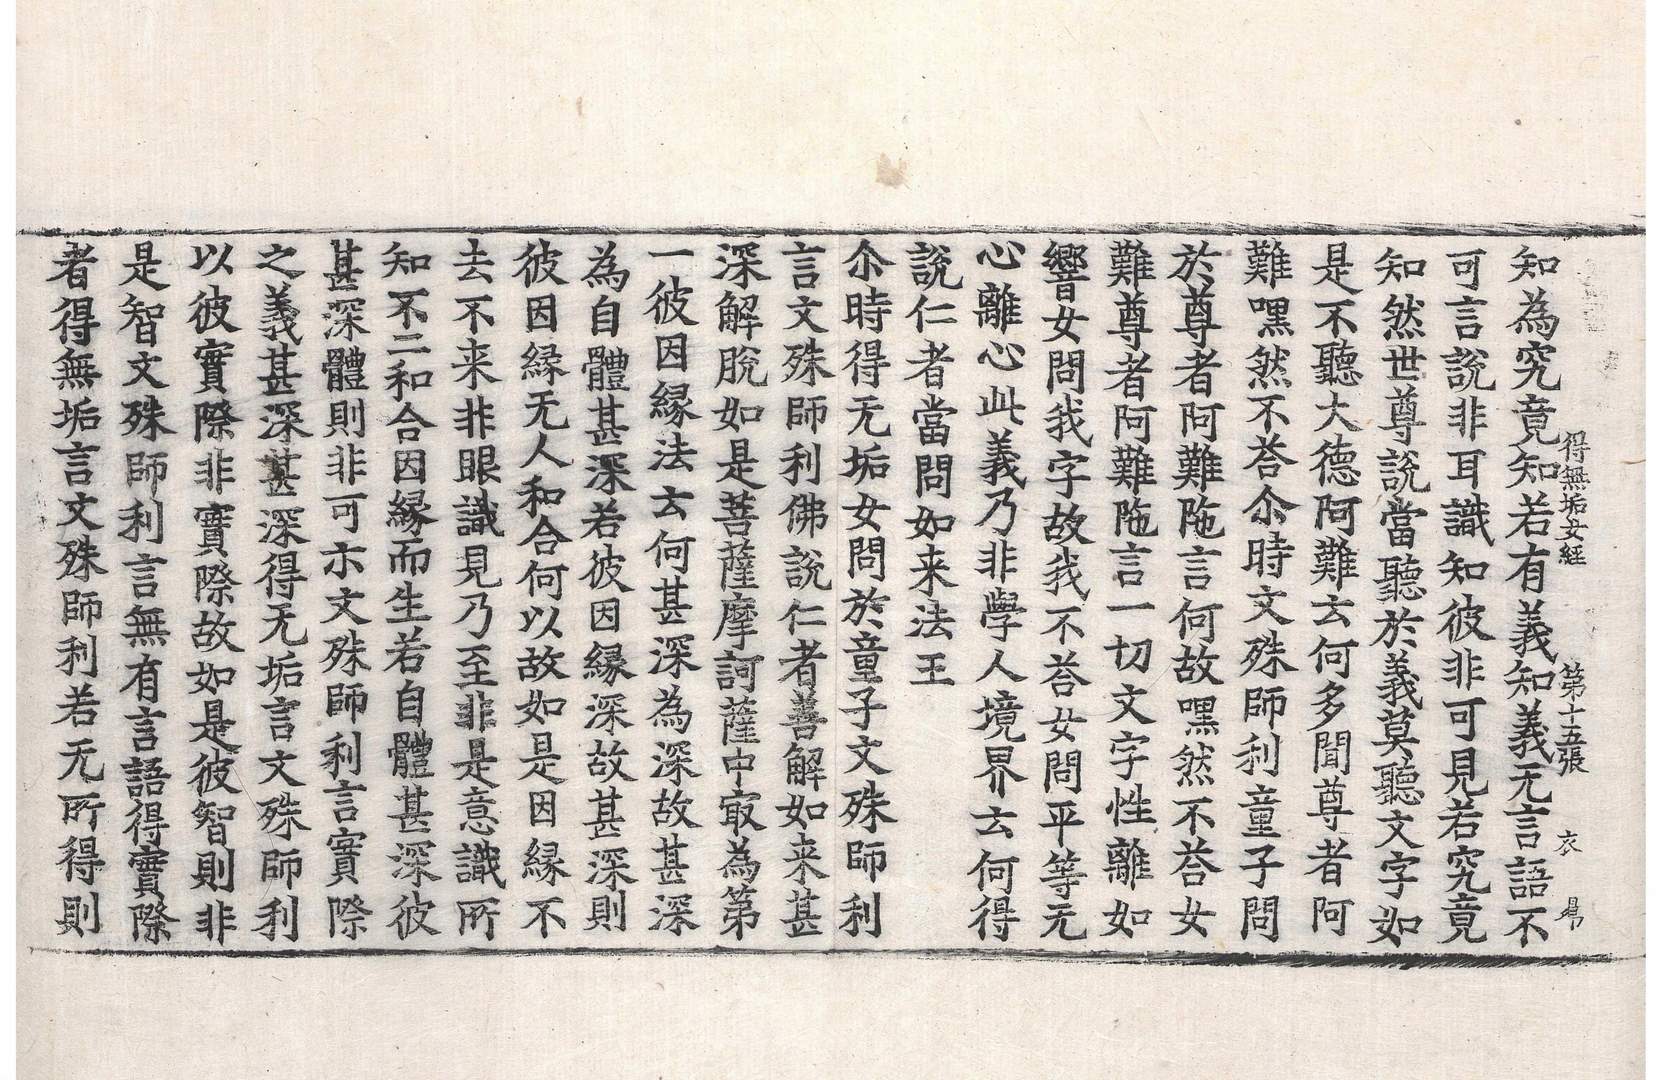 得無垢女經 第十五張 衣
知為究竟知若有義知義无言語不
可言說非耳識知彼非可見若究竟
知然世尊說當聽於義莫聽文字如
是不聽大德阿難云何多聞尊者阿
難嘿然不荅尒時文殊師利童子問
於尊者阿難陁言何故嘿然不荅女
難尊者阿難陁言一切文字性離如
響女問我字故我不荅女問平等无
心離心此義乃非學人境界云何得
說仁者當問如来法王
尒時得无垢女問於童子文殊師利
言文殊師利佛說仁者善解如来甚
深解脫如是菩薩摩訶薩中㝡為第
一彼因緣法云何甚深為深故甚深
為自體甚深若彼因緣深故甚深則
彼因緣无人和合何以故如是因緣不
去不来非眼識見乃至非是意識所
知不二和合因緣而生若自體甚深彼
甚深體則非可示文殊師利言實際
之義甚深甚深得无垢言文殊師利
以彼實際非實際故如是彼智則非
是智文殊師利言無有言語得實際
者得無垢言文殊師利若无所得則